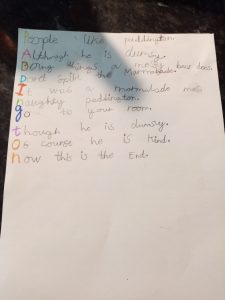 People like paddington.
Although he is clumsy.
Doing things a messy bear does.
Dont spill the Marmalade.
It was a marmalade mess
naughty peddington.
go to your room.
though he is clumsy.
Of course he is Kind.
now this is the End.